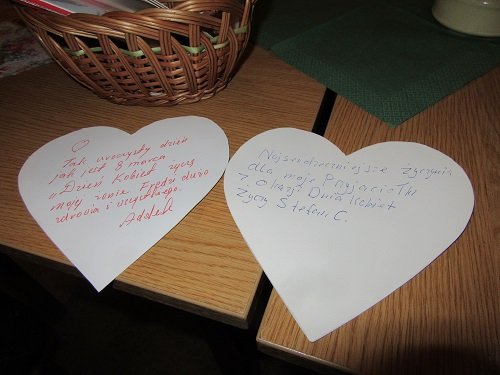 Tak uroczysty dzień
jak jest 8 marca
"Dzień Kobiet życzę
mojej żonie Fredzi dużo
zdrowia i wszystkiego.
Najserdeczniejsze życzenia
dla mojej Przyjaciółki
z okazji Dnia Kobiet
życzy Stefan C.